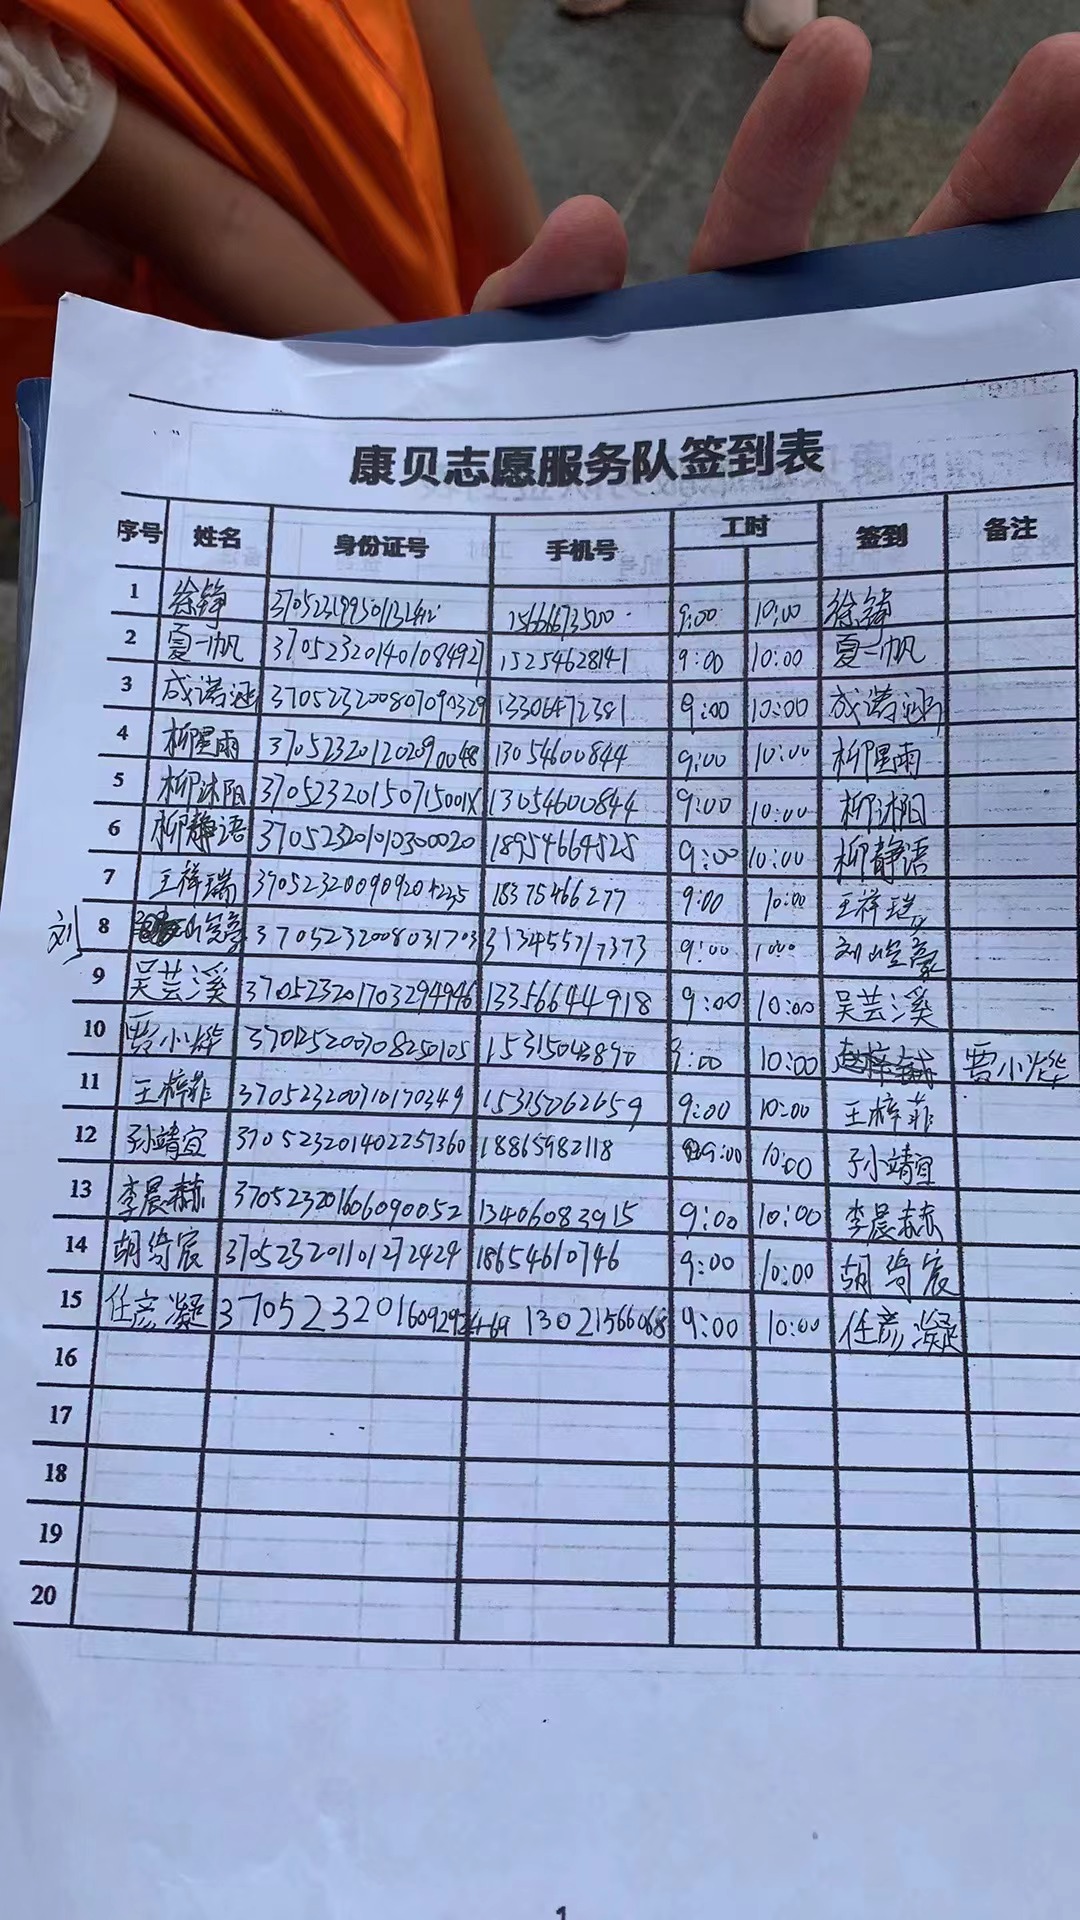 康贝志愿服务队签到表
序号 姓名 身份证号 手机号 工时 签到 备注
1 徐铮 15666673500 9:00 10:00 徐铮
2 夏一帆 370523201401084927 15254628141 9:00 10:00 夏一帆
3 成诺涵 370523200801090329 13306472381 9:00 10:00 成诺涵
4 柳星雨 370523201202090048 13054600844 9:00 10:00 柳星雨
5 柳沐阳 37052320150715001X 13054600844 9:00 10:00 柳沐阳
6 柳静语 370523201010300020 18954664525 9:00 10:00 柳静语
7 王祥瑞 18375466277 9:00 10:00 王祥瑞
刘 8 9:00 刘
9 吴芸溪 370523201703294946 13356644918 9:00 10:00 吴芸溪
10 贾小烨 15315043890 9:00 10:00 贾小烨
11 王梓菲 370523200710170349 15315062659 9:00 10:00 王梓菲
12 孙靖宜 370523201402257360 18865982118 9:00 10:00 孙靖宜
13 李晨赫 370523201606090052 13406083915 9:00 10:00 李晨赫
14 胡绮宸 370523201101272424 18654610746 9:00 10:00 胡绮宸
15 任彦凝 370523201609292469 13021566068 9:00 10:00 任彦凝
16
17
18
19
20
1